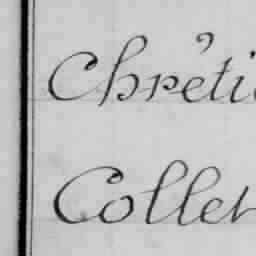 Chréti
Collet